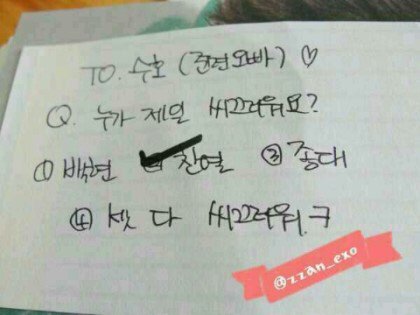 TO. 수호 (준면오빠) ♡
Q. 누가 제일 씨끄러워요?
① 백현 ② 찬열 ③ 종대
④ 셋 다 씨끄러워.ㅋ
@zzan_exo